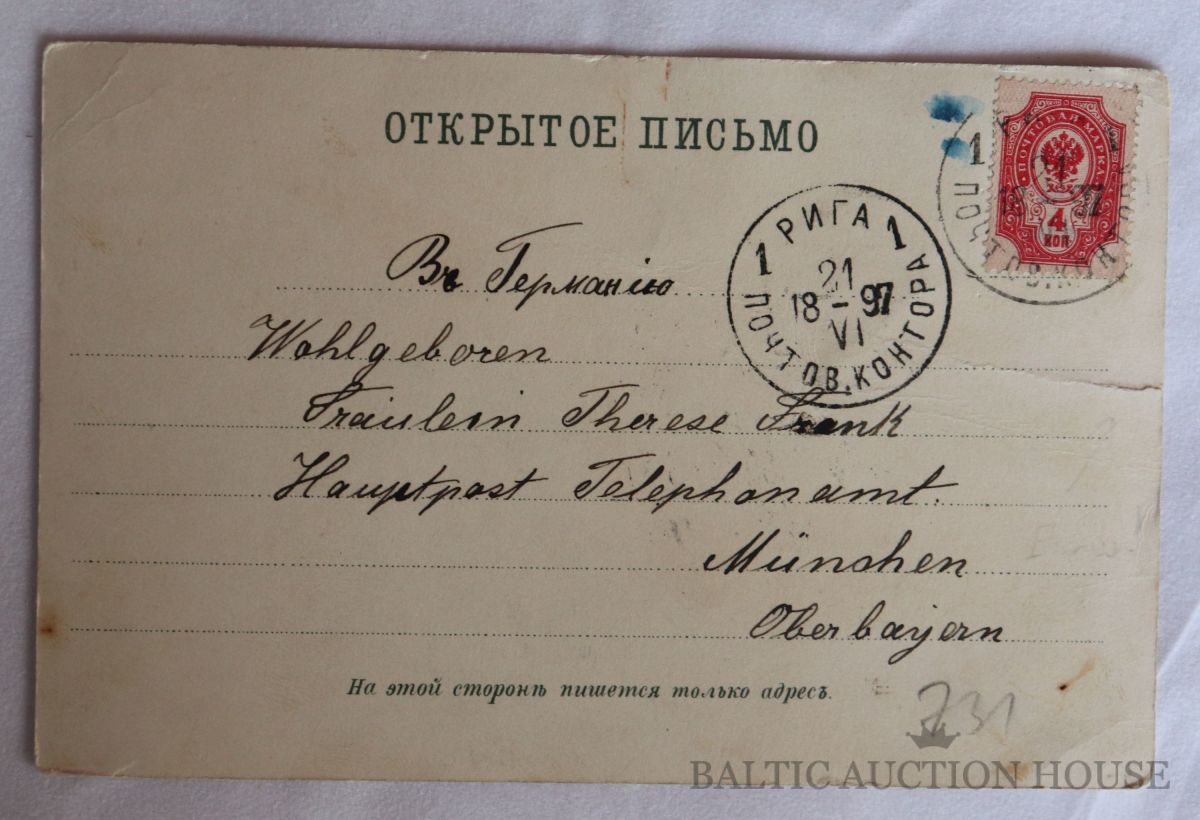 ОТКРЫТОЕ ПИСЬМО
ПОЧТОВАЯ МАРКА
4
КОП
1 ПОЧТОВ. КОНТОРА
1 РИГА 1
21
18 – 97
VI
ПОЧТОВ. КОНТОРА
Въ Германію
Wohlgeboren
Fräulein Therese Frank
Hauptpost Telephonamt.
München
Oberbayern
На этой сторонѣ пишется только адресъ.
731
BALTIC AUCTION HOUSE